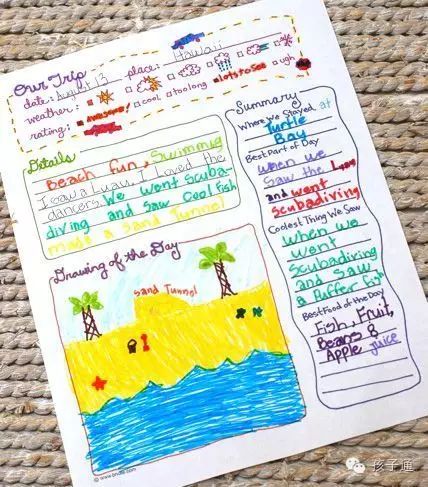 Our Trip
date: August 13 place: Hawaii
weather:
rating: awesome! cool too long lots to see ugh
Details
Beach fun, Swimmig
I saw a Luau, I Loved the
dancers. We went Scuba-
diving and saw cool fish
made a sand tunnel
Drawing of the Day
Sand Tunnel
Summary
Where We Stayed at
Turtle
Bay
Best Part of Day
when we
saw the Luau
and went
scubadiving
Coolest Thing We Saw
when we
went
scubadiving
and saw
a Puffer Fish
Best Food of the Day
Fish, Fruit,
Beans &
Apple juice
孩子通